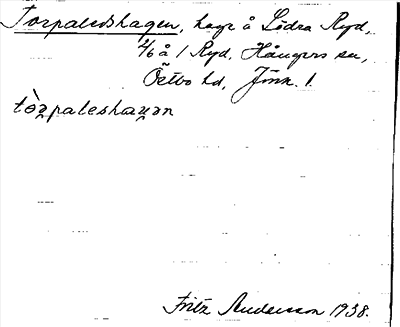 Torpaledshagen, hage å Södra Ryd,
2/6 å 1 Ryd, Hångers sn,
Östbo hd, Jönk. l.
tòrpaleshagən
Fritz Andersson 1938.